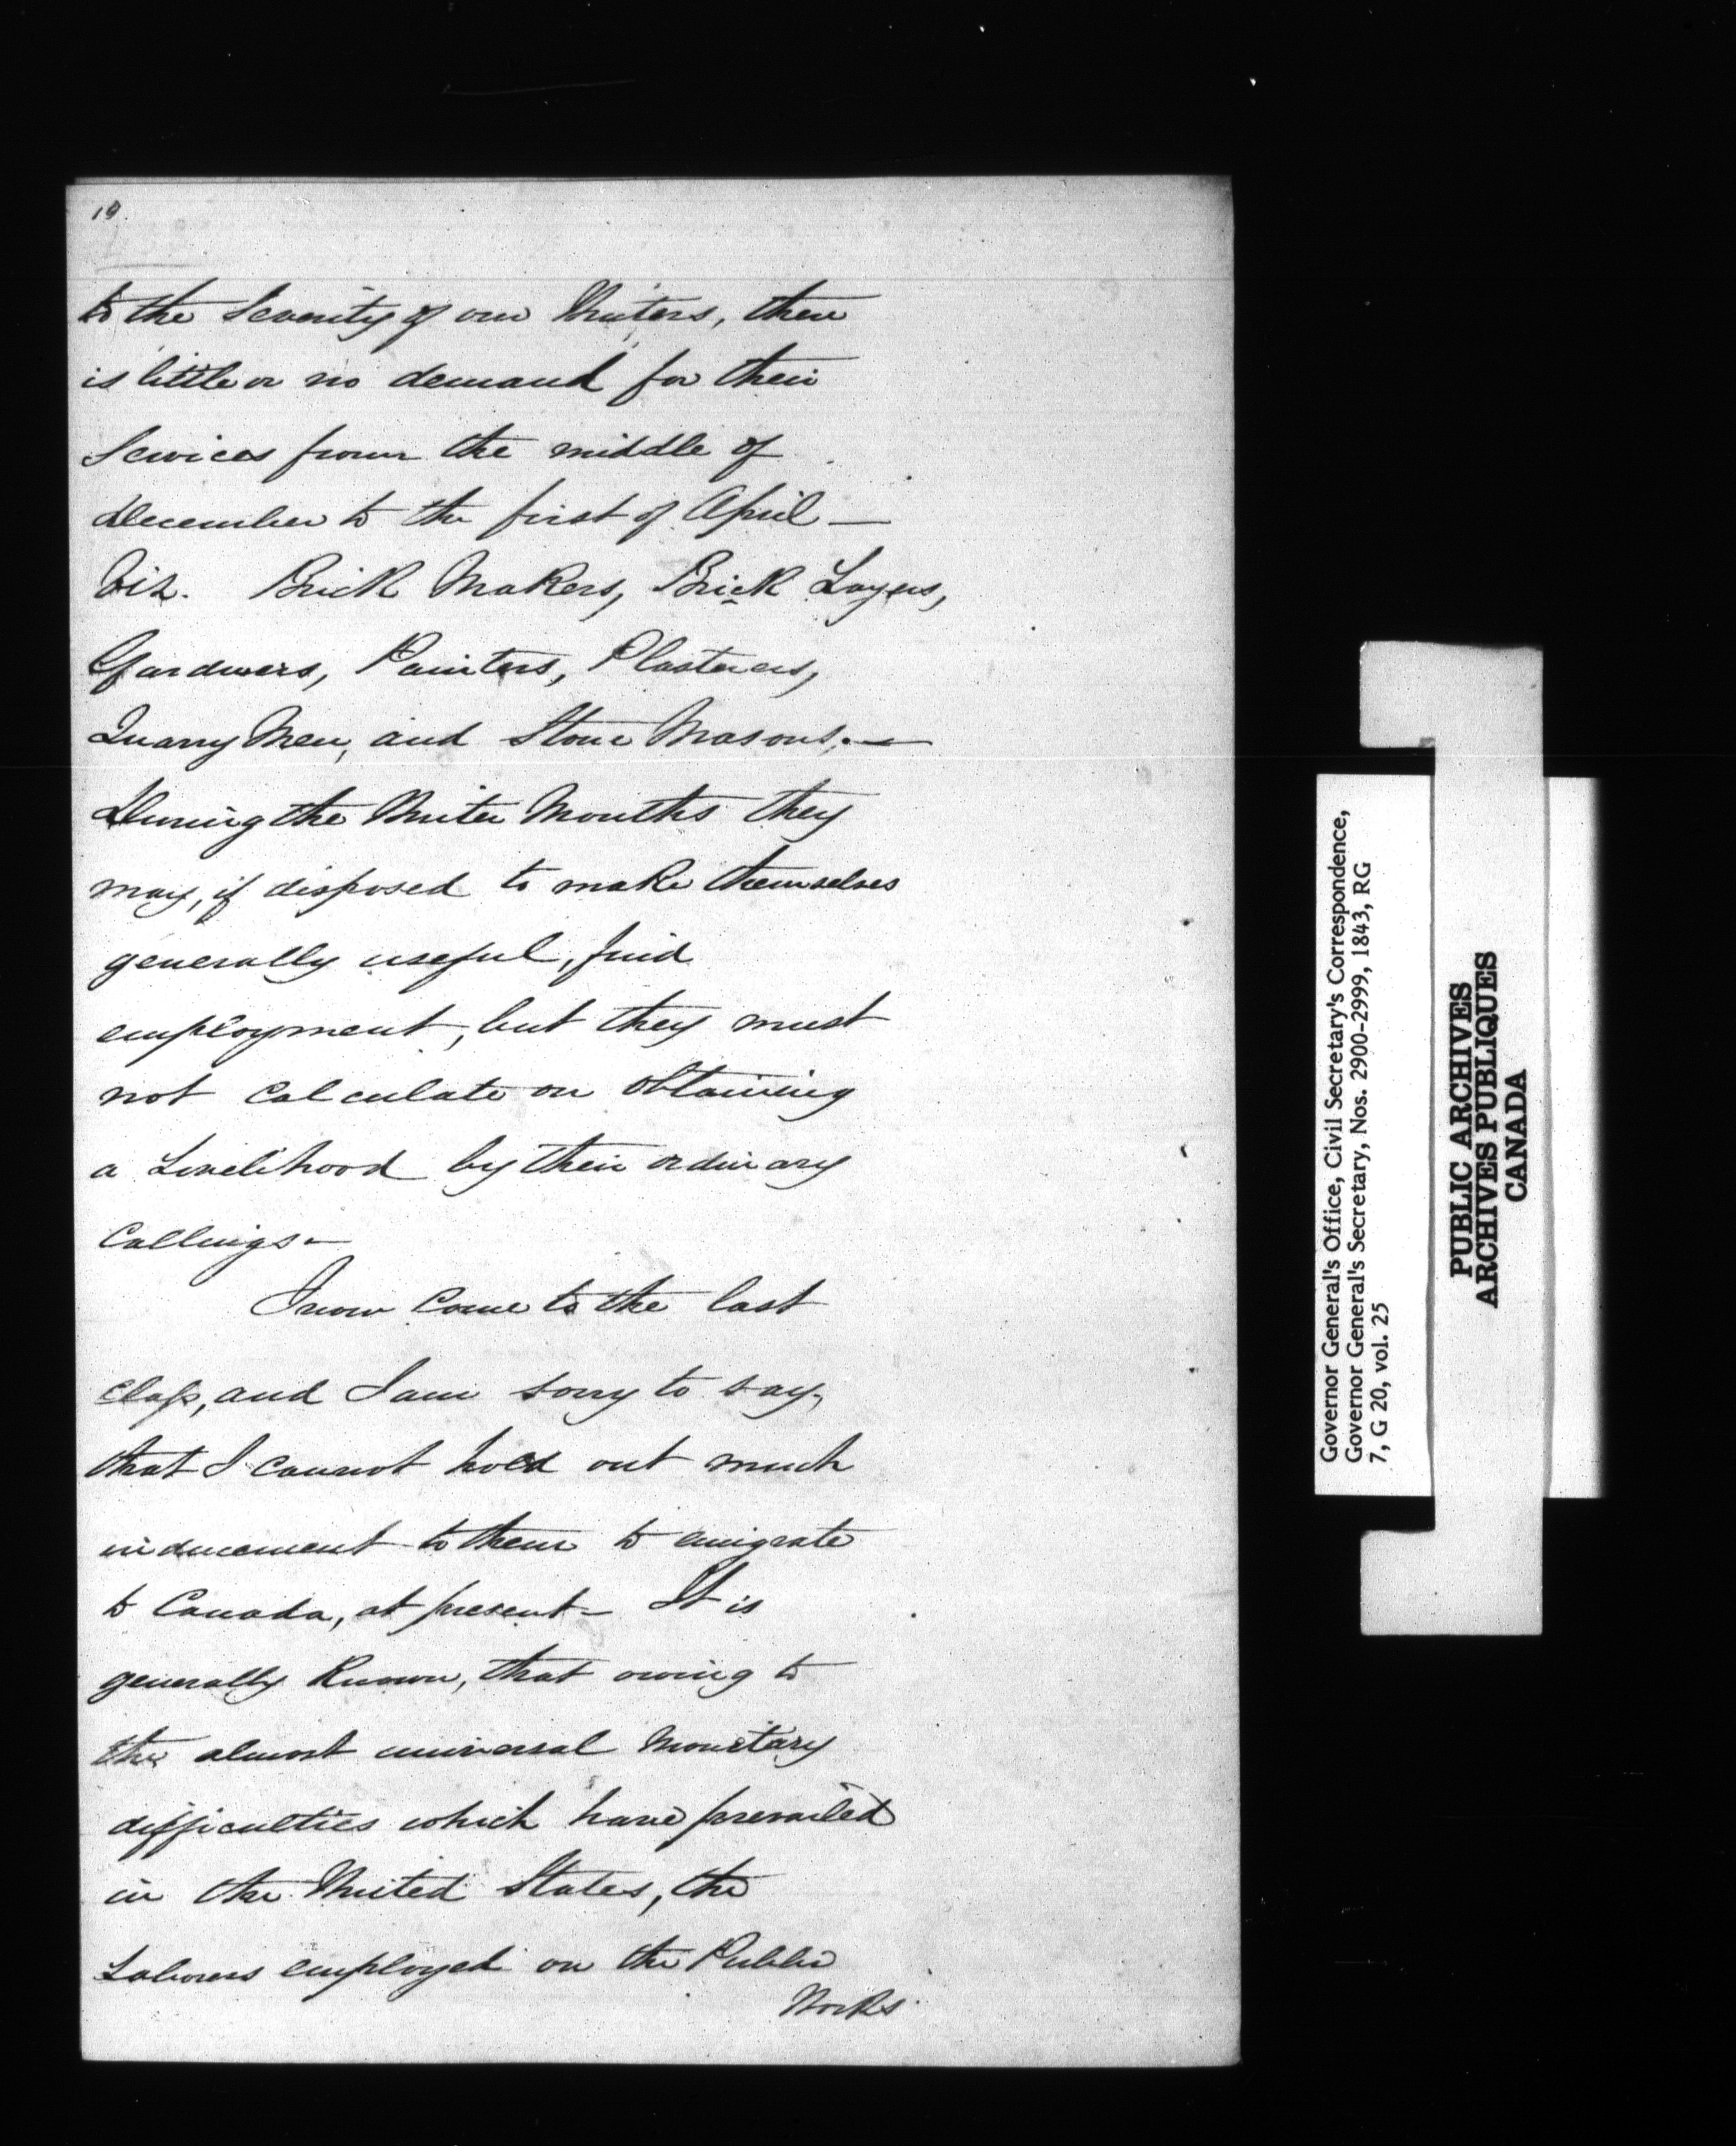 19.
to the Severity of our Winters, there
is little or no demand for their
Services from the middle of
December to the first of April —
Viz. Brick Makers, Brick Layers,
Gardners, Painters, Plasterers,
Quarry Men, and Stone Masons. —
During the Winter Months they
may, if disposed to make themselves
generally useful, find
employment, but they must
not calculate on obtaining
a Livelihood by their ordinary
Callings —
I now come to the last
class, and I am sorry to say,
that I cannot hold out much
inducement to them to emigrate
to Canada, at present — It is
generally known, that owing to
the almost universal Monetary
difficulties which have prevailed
in the United States, the
Laborers employed on the Public
Works
Governor General's Office, Civil Secretary's Correspondence,
Governor General's Secretary, Nos. 2900-2999, 1843, RG
7, G 20, vol. 25
PUBLIC ARCHIVES
ARCHIVES PUBLIQUES
CANADA